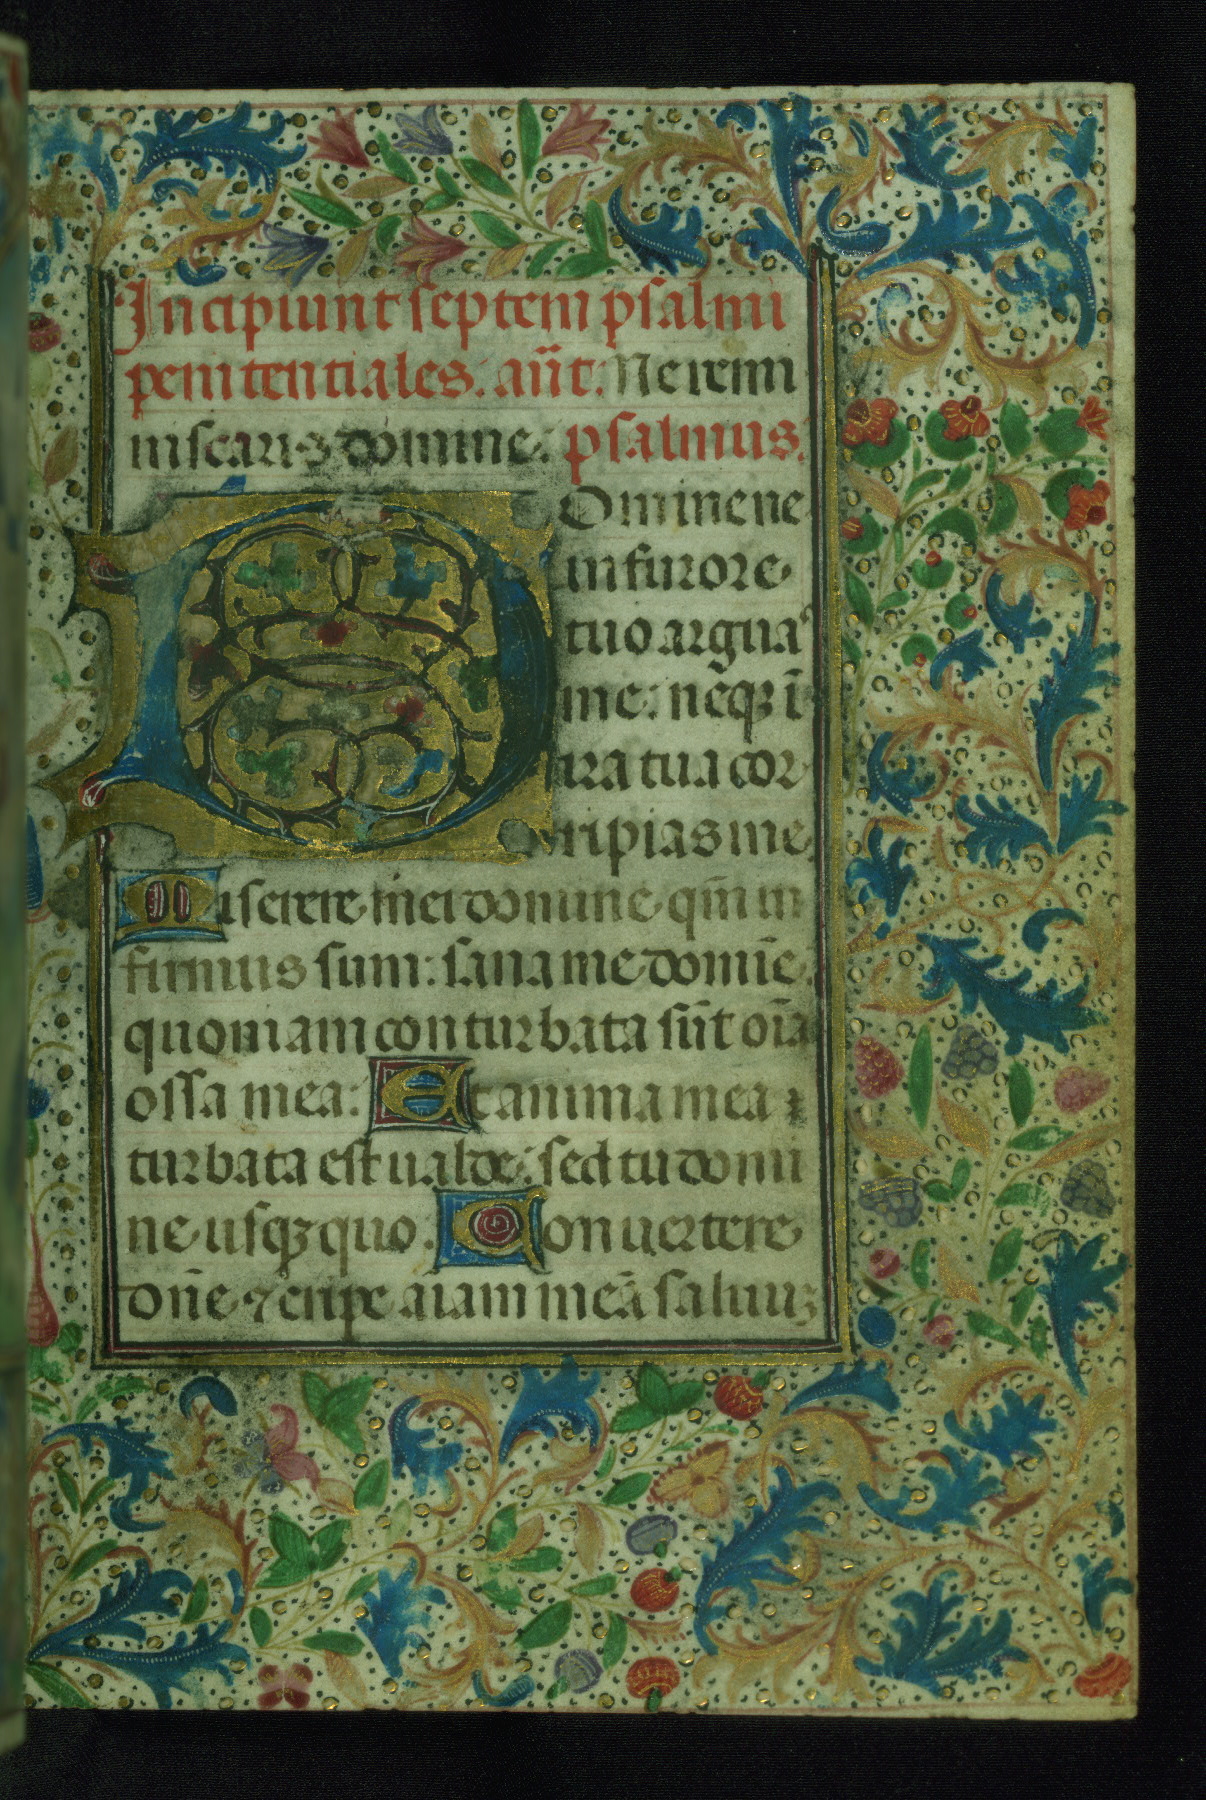 Incipiunt septem psalmi
penitentiales: an̄t: Ne remi
niscaris domine: psalmus.
Domine ne
in furore
tuo arguas
me: neqꝫ ī
ira tua cor
ripias me
Miserere mei domine qm̄ in
firmus sum: sana me domīe
quoniam conturbata sūt oīa
ossa mea: Et anima mea
turbata est ualde: sed tu domi
ne usqꝫ quo. Conuertere
dn̄e ⁊ eripe aīam meā saluū